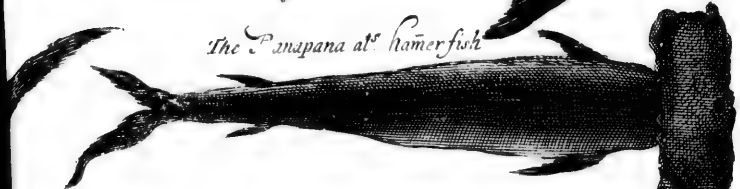 The Panapana als. ham̄er fish